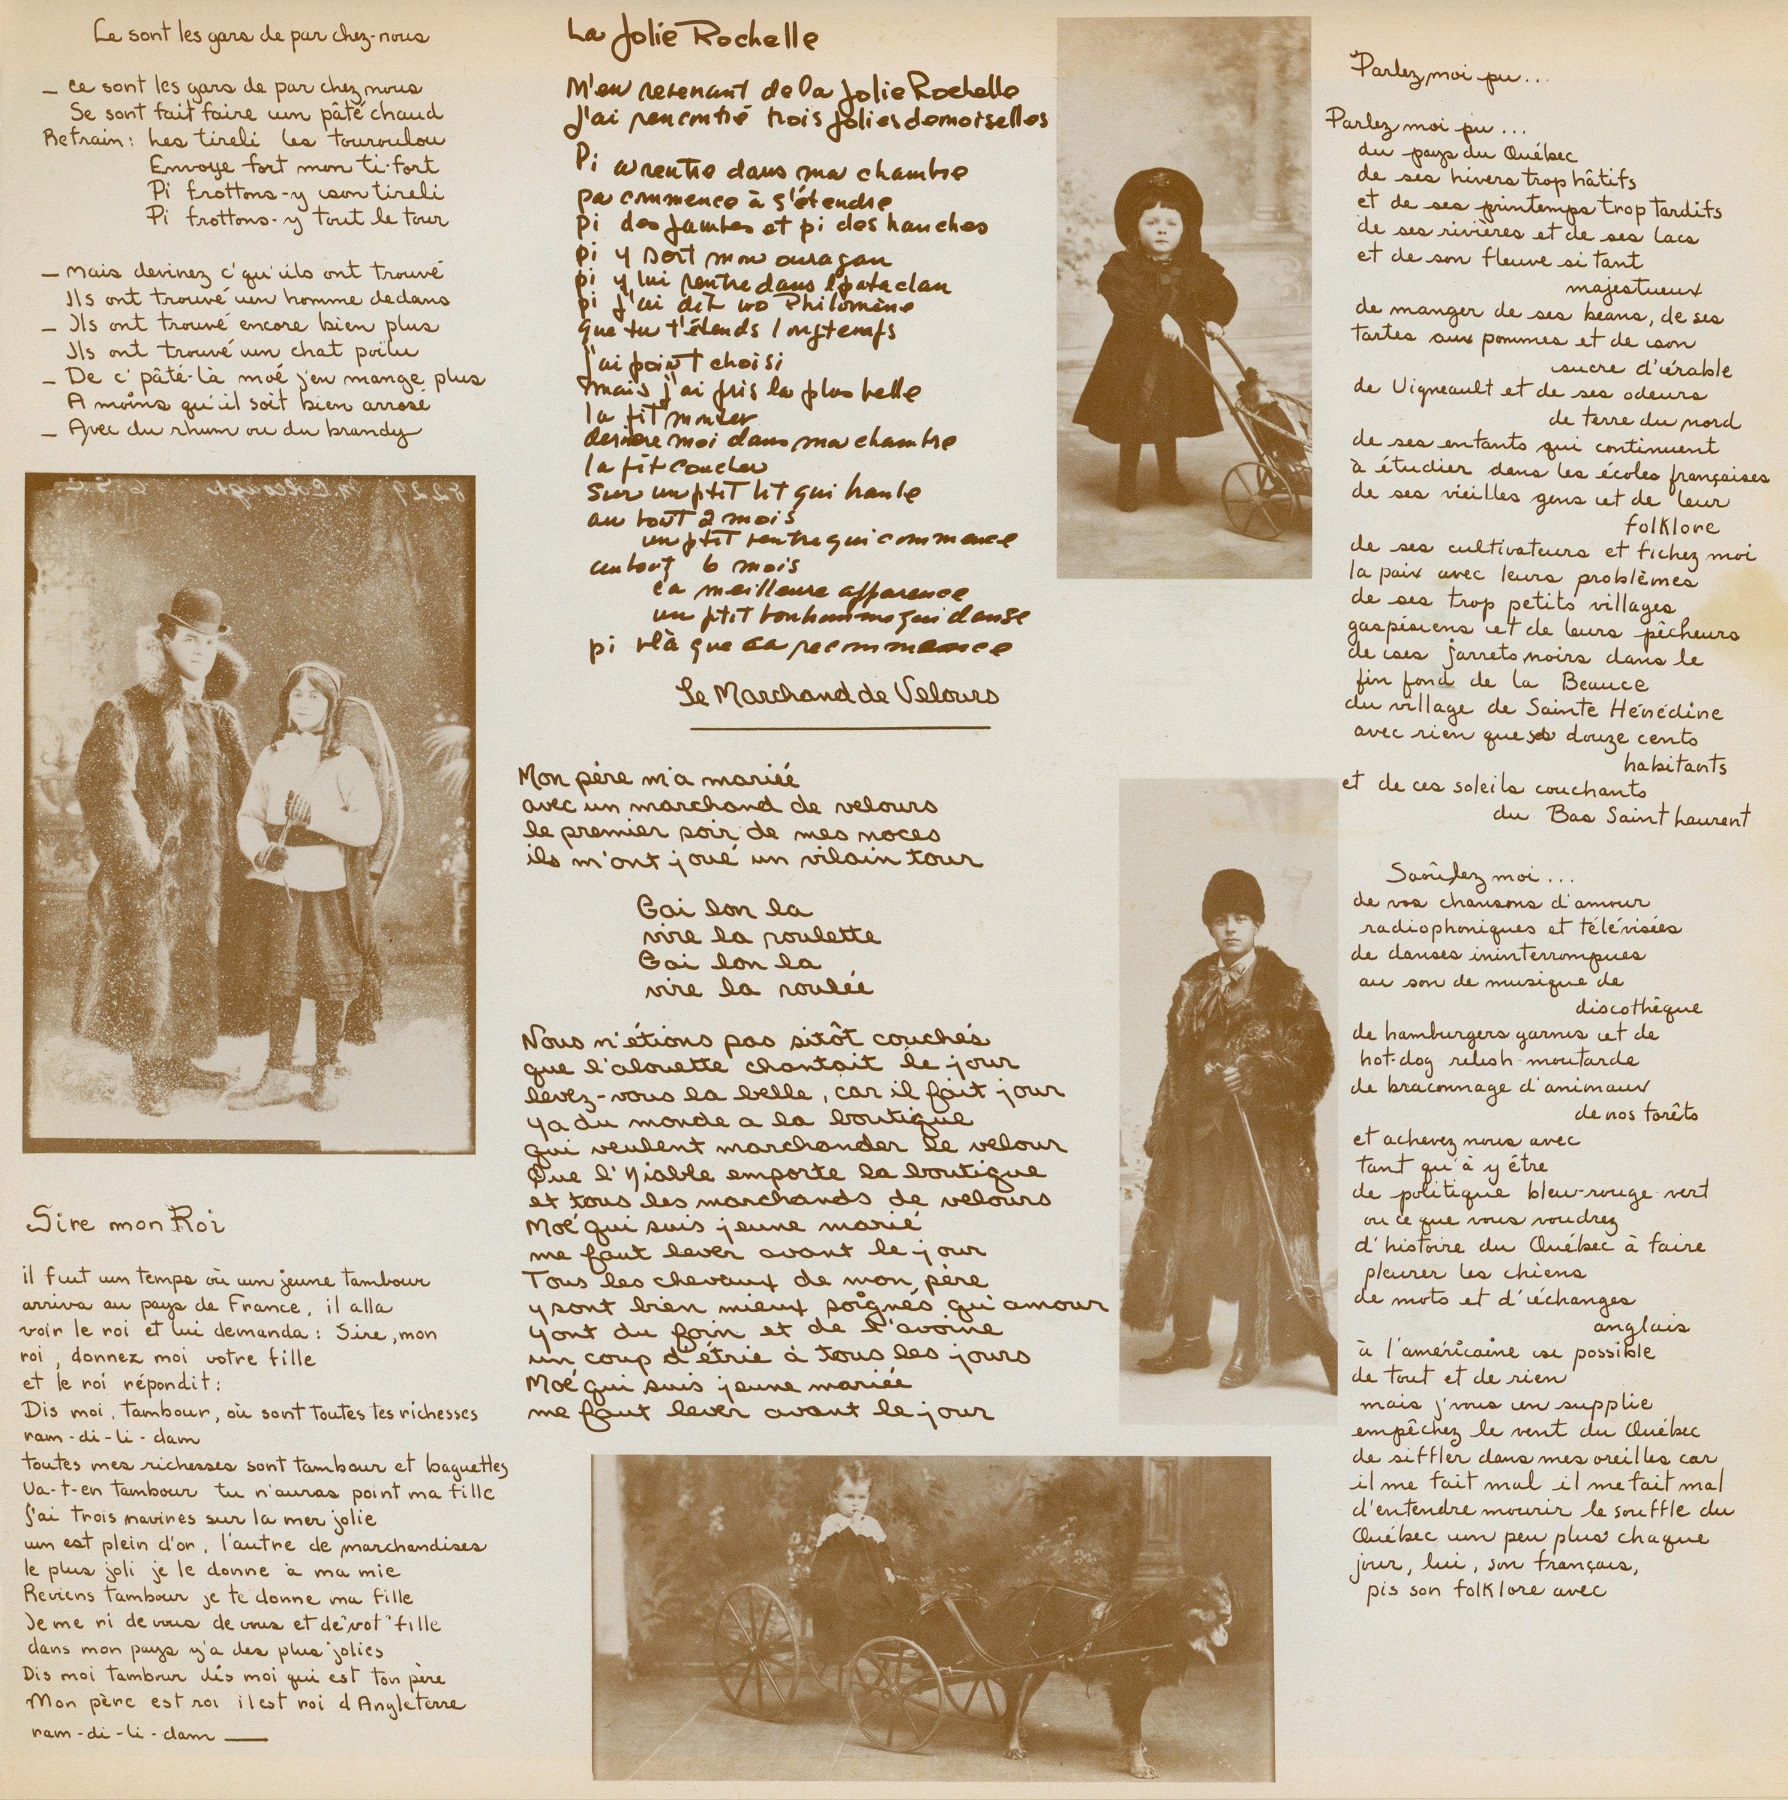 Ce sont les gars de par chez-nous
_ ce sont les gars de par chez nous
Se sont fait faire un pâté chaud
Refrain: Les tireli les touroulou
Envoye fort mon ti-fort
Pi frottons-y son tireli
Pi frottons-y tout le tour
_ Mais devinez c'qu'ils ont trouvé
Ils ont trouvé un homme dedans
_ Ils ont trouvé encore bien plus
Ils ont trouvé un chat poilu
_ De c'pâté-là moé j'en mange plus
A moins qu'il soit bien arrosé
_ Avec du rhum ou du brandy
Sire mon Roi
il fut un temps où un jeune tambour
arriva au pays de France, il alla
voir le roi et lui demanda: Sire, mon
roi, donnez moi votre fille
et le roi répondit:
Dis moi, tambour, où sont toutes tes richesses
ram-di-li-dam
toutes mes richesses sont tambour et baguettes
Va-t-en tambour tu n'auras point ma fille
J'ai trois navires sur la mer jolie
un est plein d'or, l'autre de marchandises
le plus joli je le donne à ma mie
Reviens tambour je te donne ma fille
Je me ri de vous de vous et de vot' fille
dans mon pays y'a des plus jolies
Dis moi tambour dis moi qui est ton père
Mon père est roi il est roi d'Angleterre
ram-di-li-dam __
La Jolie Rochelle
M'en revenant de la Jolie Rochelle
J'ai rencontré trois jolies demoiselles
Pi a rentre dans ma chambre
pa commence à s'étendre
pi des jambes et pi des hanches
pi y sort mon ouragan
pi y lui rentre dans l'pataclan
pi j'ai dit wo Philomène
que tu t'étends longtemps
j'ai point choisi
mais j'ai pris la plus belle
la fit monter
derière moi dans ma chambre
la fit coucher
sur un ptit lit qui branle
au bout 2 mois
un ptit ventre qui commence
au bout 6 mois
ca meilleure apparence
un ptit bonhomme qui danse
pi vlà que ca recommence
Le Marchand de Velours
Mon père m'a mariée
avec un marchand de velours
le premier soir de mes noces
ils m'ont joué un vilain tour
Gai lon la
vire la roulette
Gai lon la
vire la roulée
Nous n'étions pas sitôt couchés
que l'alouette chantait le jour
levez-vous la belle, car il fait jour
ya du monde a la boutique
qui veulent marchander le velour
Que l'Yiable emporte la boutique
et tous les marchands de velours
Moé qui suis jeune marié
me faut lever avant le jour
Tous les chevaux de mon père
y sont bien mieux soignés qu'amour
yont du foin et de l'avoine
un coup d'étrie à tous les jours
Moé qui suis jeune mariée
me faut lever avant le jour
Parlez moi pu...
Parlez moi pu...
du pays du Québec
de ses hivers trop hâtifs
et de ses printemps trop tardifs
de ses rivières et de ses lacs
et de son fleuve si tant
majestueux
de manger de ses beans, de ses
tartes aux pommes et de son
sucre d'érable
de Vigneault et de ses odeurs
de terre du nord
de ses enfants qui continuent
à étudier dans les écoles françaises
de ses vieilles gens et de leur
folklore
de ses cultivateurs et fichez moi
la paix avec leurs problèmes
de ses trop petits villages
gaspésiens et de leurs pêcheurs
de ses jarrets noirs dans le
fin fond de la Beauce
du village de Sainte Hénédine
avec rien que ses douze cents
habitants
et de ces soleils couchants
du Bas Saint Laurent
Saoûlez moi...
de vos chansons d'amour
radiophoniques et télévisées
de danses ininterrompues
au son de musique de
discothèque
de hamburgers garnis et de
hot-dog relish-moutarde
de braconnage d'animaux
de nos forêts
et achevez nous avec
tant qu'à y être
de politique bleu-rouge-vert
ou ce que vous voudrez
d'histoire du Québec à faire
pleurer les chiens
de mots et d'échanges
anglais
à l'américaine si possible
de tout et de rien
mais j'vous en supplie
empêchez le vent du Québec
de siffler dans mes oreilles car
il me fait mal il me fait mal
d'entendre mourir le souffle du
Québec un peu plus chaque
jour, lui, son français,
pis son folklore avec